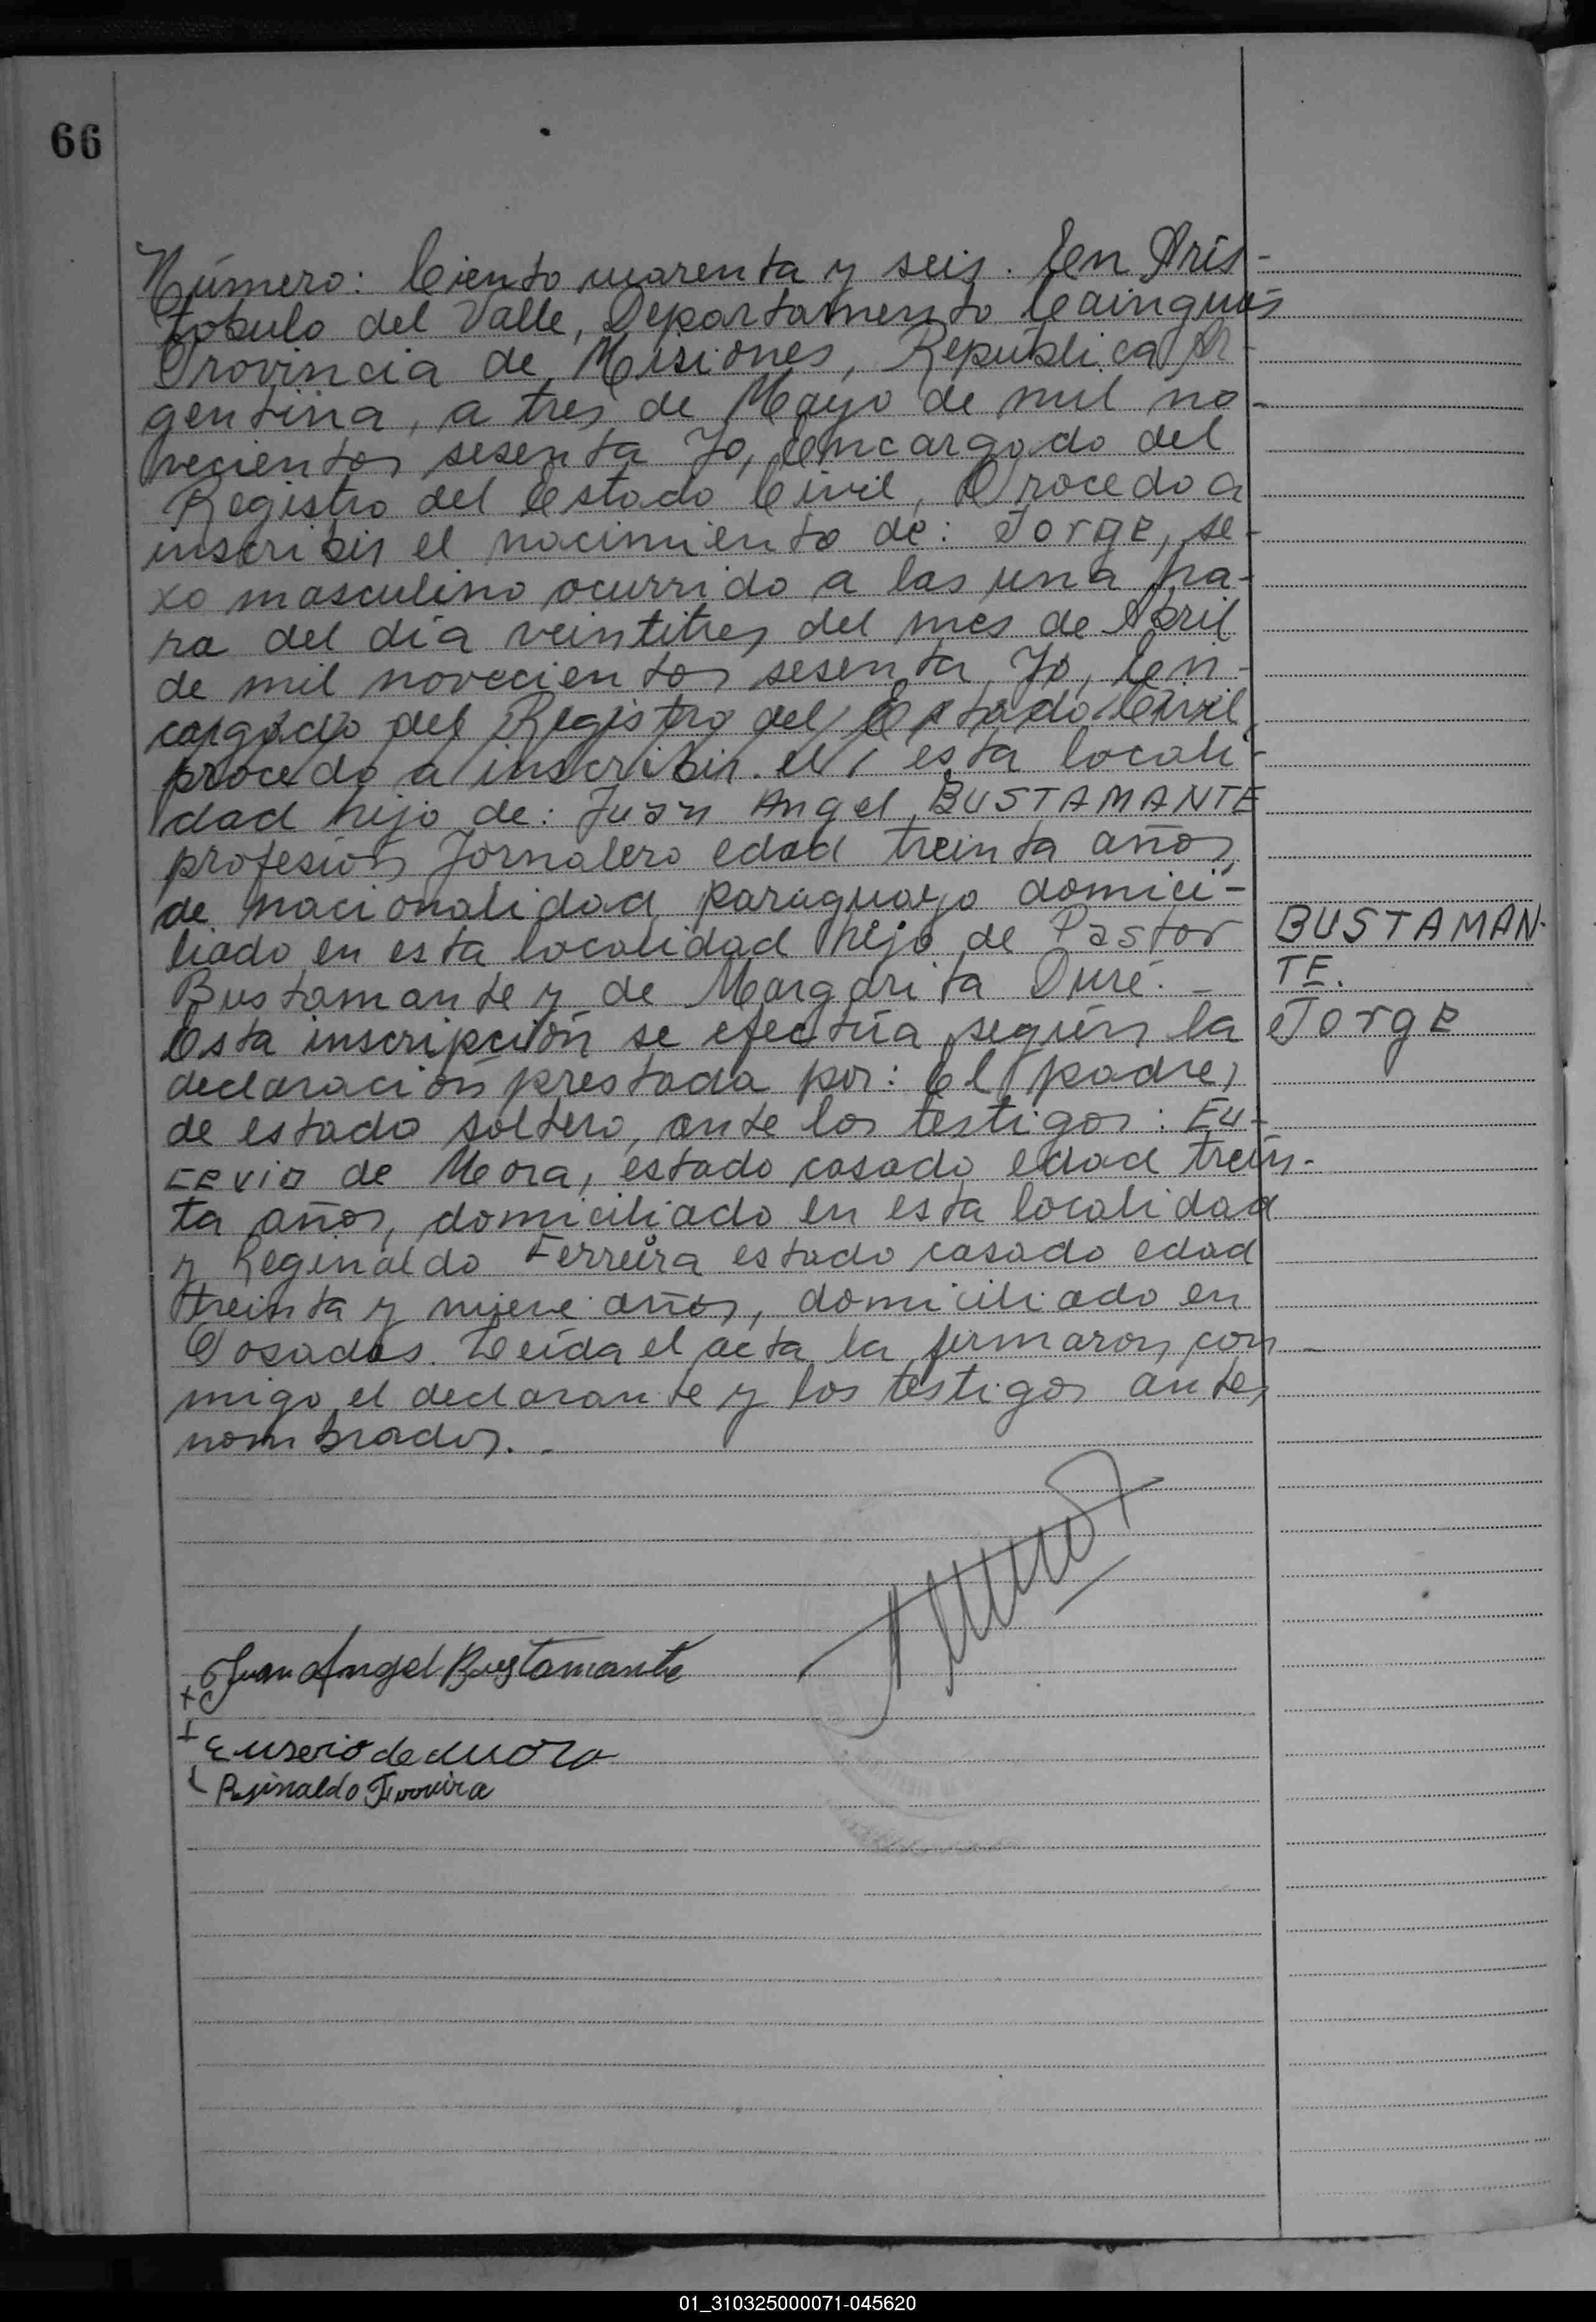 66
Número: Ciento cuarenta y seis. En Aris-
tobulo del Valle, Departamento Cainguás
Provincia de Misiones, República Ar-
gentina, a tres de Mayo de mil no-
vecientos sesenta Yo, Encargado del
Registro del Estado Civil, Procedo a
inscribir el nacimiento de: Jorge, se-
xo masculino ocurrido a las una ho-
ra del día veintitres del mes de Abril
de mil novecientos sesenta, Yo, En-
cargado del Registro del Estado Civil,
procedo a inscribir el esta locali-
dad hijo de: Juan Angel BUSTAMANTE
profesión Jornalero edad treinta años,
de nacionalidad paraguayo domici-
liado en esta localidad hijo de Pastor
Bustamante y de Margarita Duré. -
Esta inscripción se efectúa según la
declaración prestada por: El padre,
de estado soltero, ante los testigos: Eu-
cevio de Mora, estado casado edad trein-
ta años, domiciliado en esta localidad
y Reginaldo Ferreira estado casado edad
treinta y nueve años, domiciliado en
Posadas. Leída el acta la firmaron con
migo el declarante y los testigos antes
nombrados. -
BUSTAMAN-
TE.
Jorge
Juan Angel Bustamante
Euserio de Mora
Rejinaldo Ferreira
01_310325000071-045620